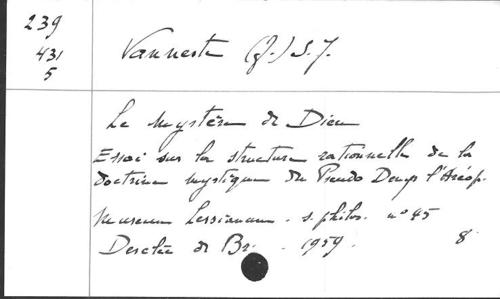 239
431
5
Vanneste (J.) S.J.
Le Mystère de Dieu
Essai sur la structure rationnelle de la
doctrine mystique du Pseudo Denys l'Aréop.
Museum Lessianum . s. philos. n° 45
Desclée de Br. . 1959 . 8